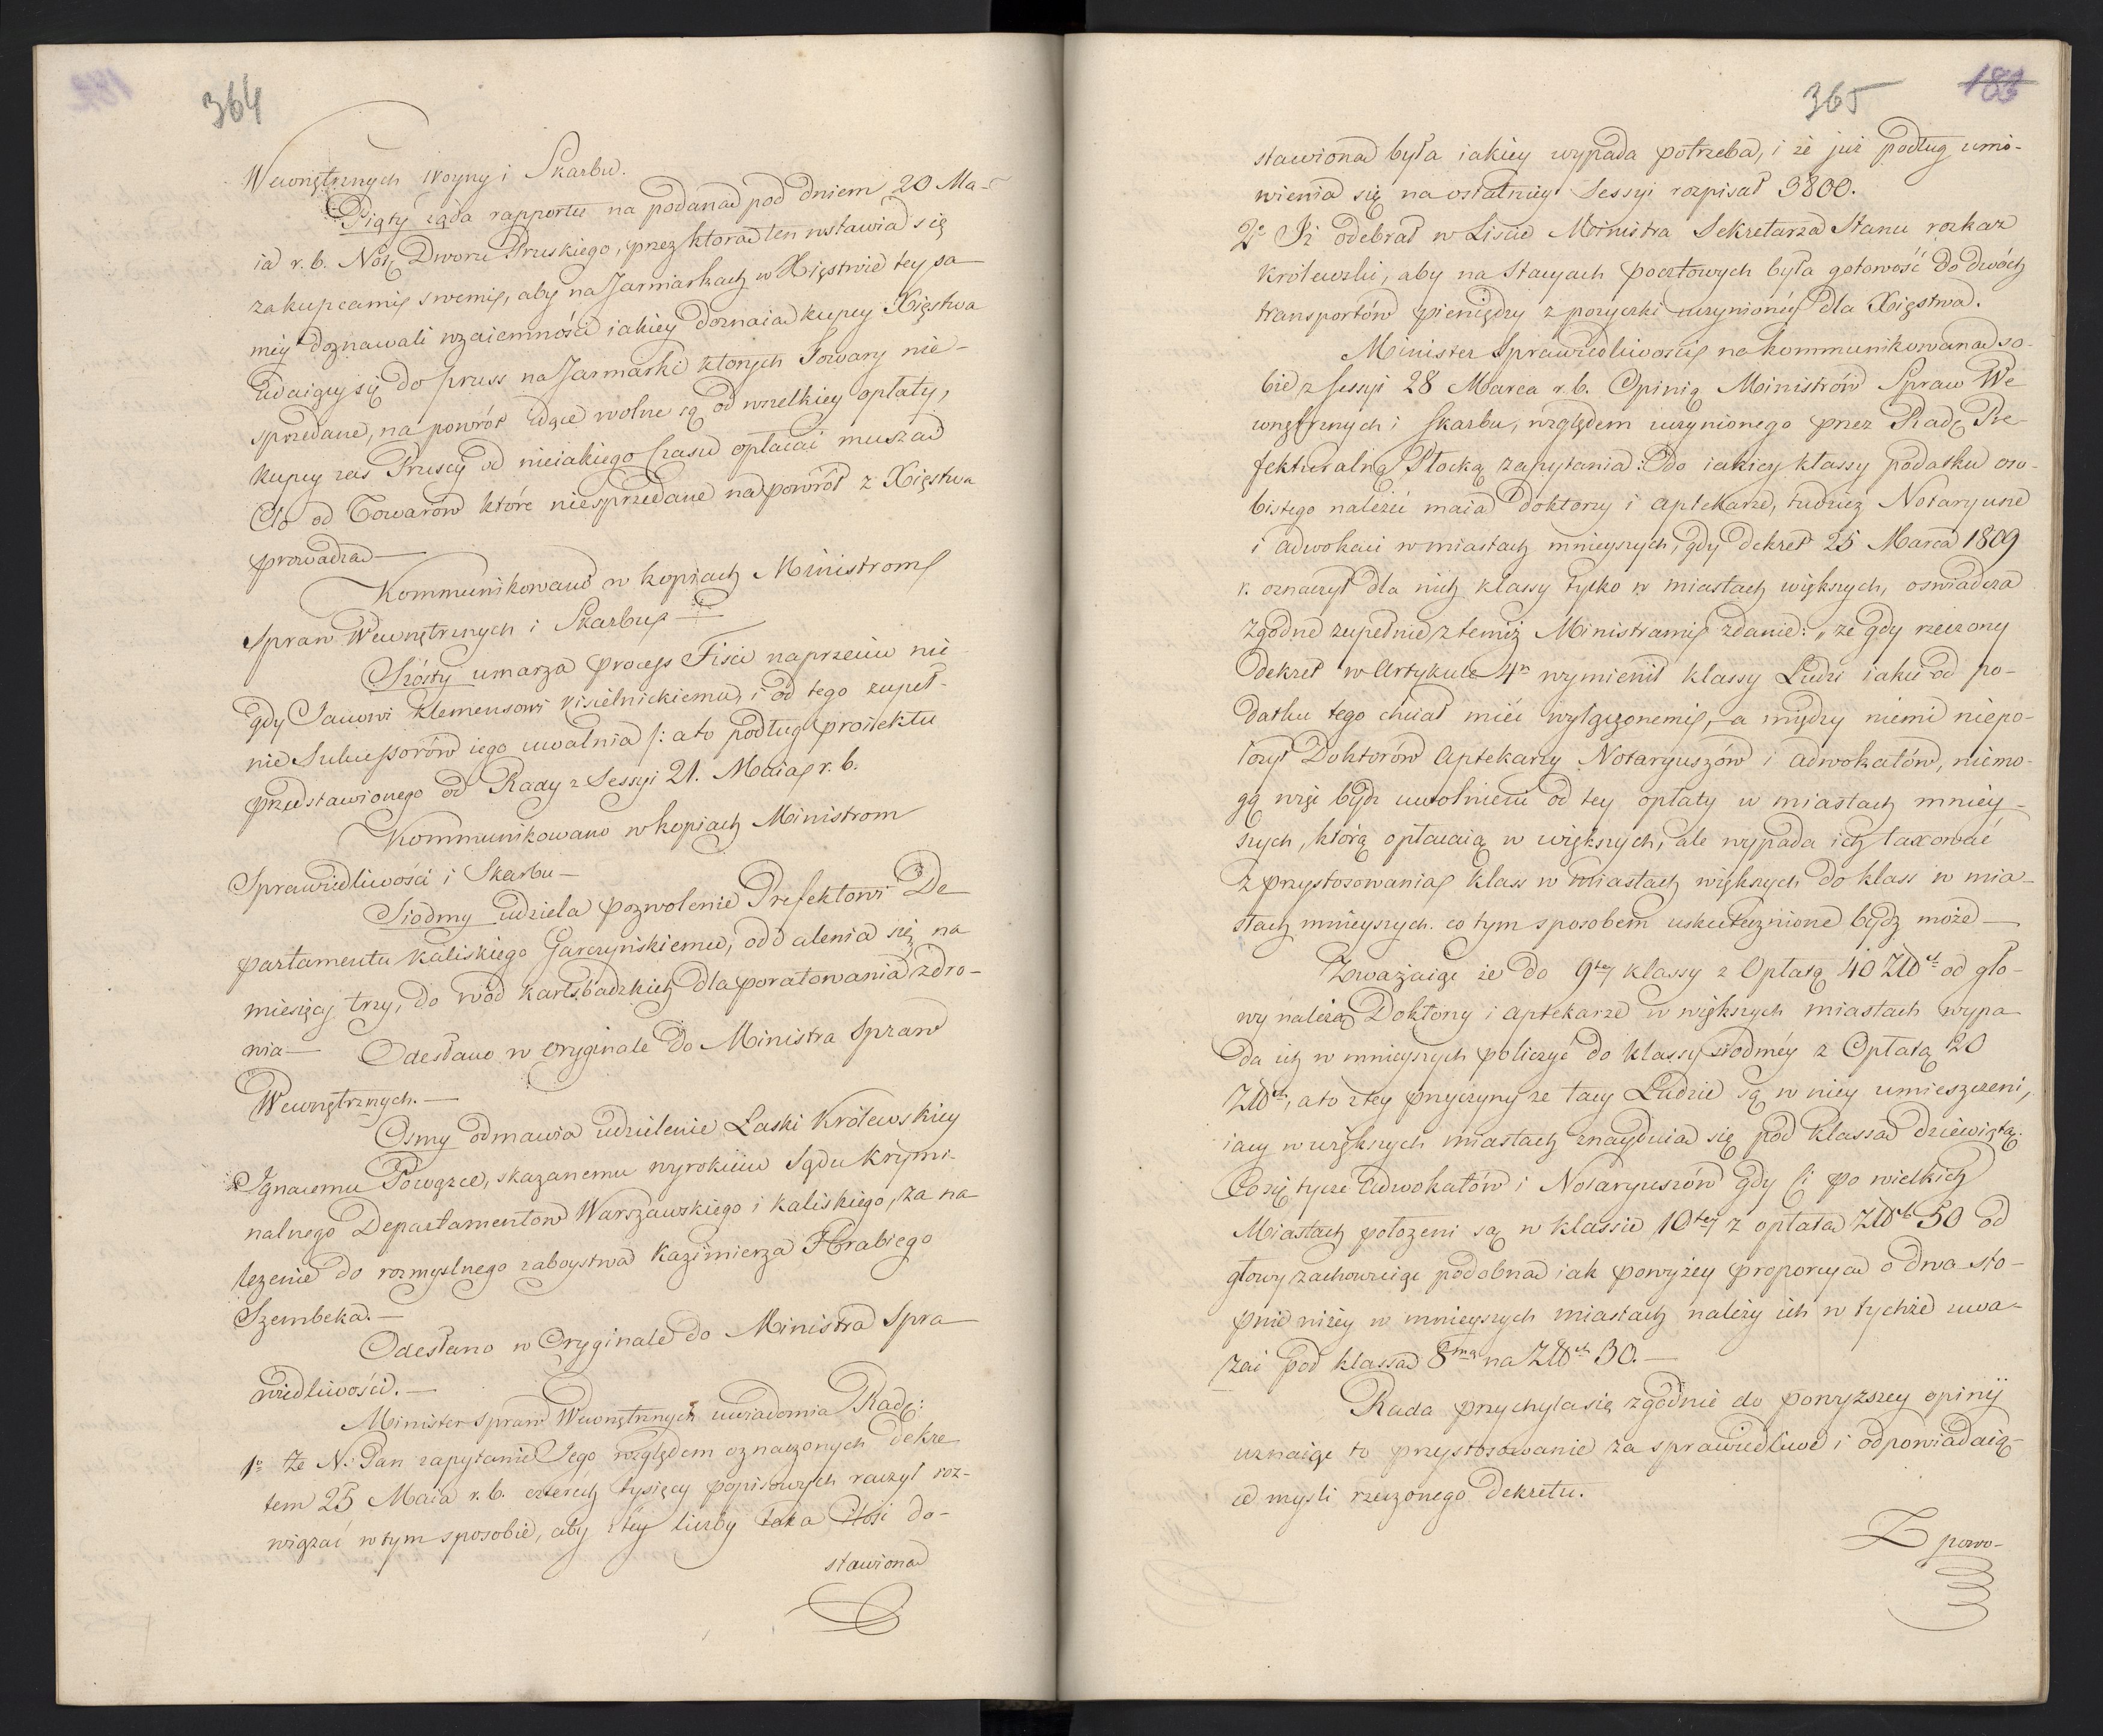 364
Wewnętrznych Woyny i Skarbu.
Piąty żąda rapportu na podaną pod dniem 20 Ma-
ia r. b. Notę Dworu Pruskiego, przez którą ten wstawia się
za kupcami swemi, aby na Jarmarkach w Xięstwie tey sa-
mey doznawali wzaiemności iakiey doznaią kupcy Xięstwa
udaiący się do Pruss na Jarmarki których Towary nie-
sprzedane, na powrót idące wolne są od wszelkiey opłaty,
kupcy zaś Pruscy od nieiakiego Czasu opłacać muszą
Cło od Towarów które niesprzedane na powrót z Xięstwa
prowadzą —
Kommunikowano w kopiach Ministrom
Spraw Wewnętrznych i Skarbu —
Szósty umarza process Fisci naprzeciw nie
gdy Janowi Klemensowi Kisielnickiemu, i od tego zupeł-
nie Sukcessorów iego uwalnia /: a to podług proiektu
przedstawionego od Rady z Sessyi 21. Maia r. b.
Kommunikowano w kopiach Ministrom
Sprawiedliwości i Skarbu —
Siodmy udziela pozwolenie Prefektowi De-
partamentu Kaliskiego Garczyńskiemu, oddalenia się na
miesięcy trzy, do wód karlsbadzkich dla poratowania zdro-
wia — Odesłano w oryginale do Ministra Spraw
Wewnętrznych. —
Osmy odmawia udzielenie Łaski Królewskiey
Ignacemu Powązce, skazanemu wyrokiem Sądu Krymi-
nalnego Departamentów Warszawskiego i Kaliskiego, za na
leżenie do rozmyslnego zaboystwa Kazimierza Hrabiego
Szembeka. —
Odesłano w Oryginale do Ministra Spra
wiedliwości. —
Minister Spraw Wewnętrznych uwiadomia Radę:
1o Że N: Pan zapytanie Jego względem oznaczonych dekre
tem 25 Maia r. b. czterech tysięcy popisowych raczył roz-
wiązać w tym sposobie, aby z tey liczby taka ilość do-
stawiona
365
183
stawiona była iakiey wypada potrzeba, i że już podług umó-
wienia się na ostatniey Sessyi rozpisał 3800.
2o Iż odebrał w Liście Ministra Sekretarza Stanu rozkaz
Królewski, aby na Stacyach pocztowych była gotowość do dwóch
transportów pieniędzy z pożyczki uczynionéy dla Xięstwa.
Minister Sprawiedliwości na kommunikowaną so-
bie z Sessyi 28 Marca r. b. Opinią Ministrów Spraw We
wnętrznych i Skarbu, względem uczynionego przez Radę Pre-
fekturalną Płocką zapytania: do iakiey klassy podatku oso-
bistego należeć maią doktorzy i aptekarze, tudzież Notaryusze
i adwokaci w miastach mnieyszych, gdy dekret 25 Marca 1809
r. oznaczył dla nich klassy tylko w miastach większych, oswiadcza
zgodne zupełnie z temiż Ministrami zdanie: „że gdy rzeczony
dekret w Artykule 4m wymienił klassy Ludzi iakie od po-
datku tego chciał mieć wyłączonemi, a między niemi niepo-
łożył Doktorów Aptekarzy Notaryuszów i adwokatów, niemo-
gą więc bydź uwolnieni od tey opłaty w miastach mniey-
szych, którą opłacaią w większych, ale wypada ich taxować
z przystosowania klass w miastach większych do klass w mia-
stach mnieyszych. co tym sposobem uskutecznione bydź może —
Zważaiąc że do 9tey klassy z Opłatą 40 Złotch od gło-
wy należą Doktorzy i aptekarze w większych miastach wypa
da ich w mnieyszych policzyć do klassy siodméy z Opłatą 20
Złotch, a to z tey przyczyny że tacy Ludzie są w niey umieszczeni,
iacy w większych miastach znayduią się pod klassą dziewiątą.
Co się tycze Adwokatów i Notaryuszów gdy Ci po wielkich
Miastach położeni są w klassie 10tey z opłatą Złotch 50 od
głowy zachowuiąc podobną iak powyżey proporcyą o dwa sto-
pnie niżey w mnieyszych miastach należy ich w tychże uwa-
żać pod klassą 8mą na Złotch 30. —
Rada przychyla się zgodnie do powyższey opinij
uznaiąc to przystosowanie za sprawiedliwe i odpowiadaią-
ce mysli rzeczonego Dekretu.
Z powo-